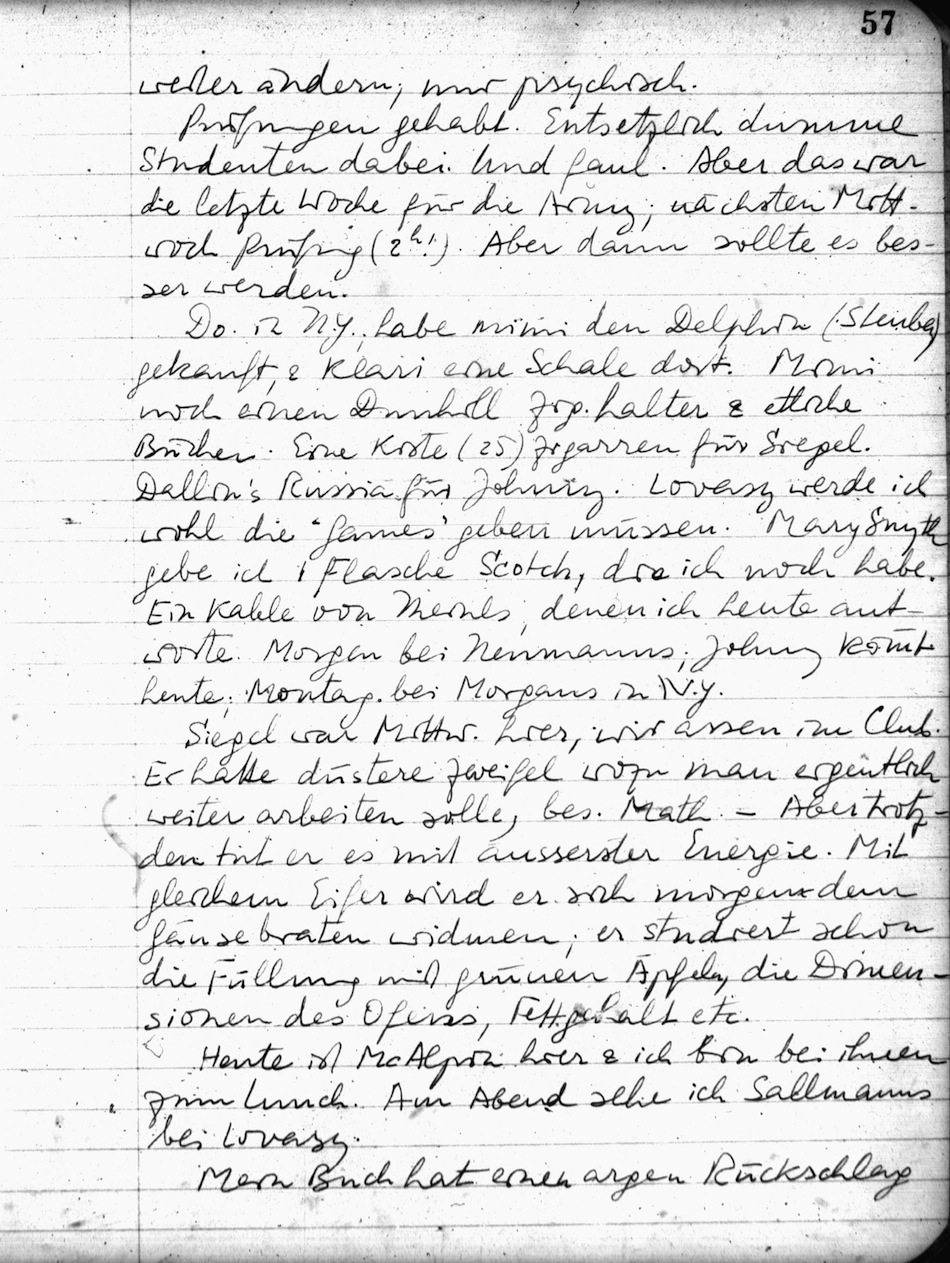 57
weiter ändern; nur psychisch.
Prüfungen gehabt. Entsetzlich dumme
Studenten dabei. Und faul. Aber das war
die letzte Woche für die Army; nächsten Mitt-
woch Prüfung (2h!). Aber dann sollte es bes-
ser werden.
Do. in N.Y., habe Mimi den Delphin (Steuben)
gekauft, & Klari eine Schale dort. Mimi
noch einen Dunhill Zig.halter & etliche
Bücher. Eine Kiste (25) Zigarren für Siegel.
Dallin's Russia für Johnny. Lovasz werde ich
wohl die 'Games' geben müssen. Mary Smyth
gebe ich 1 Flasche Scotch, die ich noch habe.
Ein Kable von denen ich heute ant-
worte. Morgen bei Neumanns; Johnny kom̄t
heute; Montag bei Morgans in N.Y.
Siegel war Mittw. hier, wir assen im Club.
Er hatte düstere Zweifel wozu man eigentlich
weiter arbeiten solle, bes. Math. – Aber trotz-
dem tut er es mit äusserster Energie. Mit
gleichem Eifer wird er sich morgen dem
Gänsebraten widmen; er studiert schon
die Füllung mit grünen Äpfeln, die Dimen-
sionen des Ofens, Fettgehalt etc.
Heute ist McAlpin hier & ich bin bei ihnen
zum Lunch. Am Abend sehe ich Sallmanns
bei Lovasz.
Mein Buch hat einen argen Rückschlag